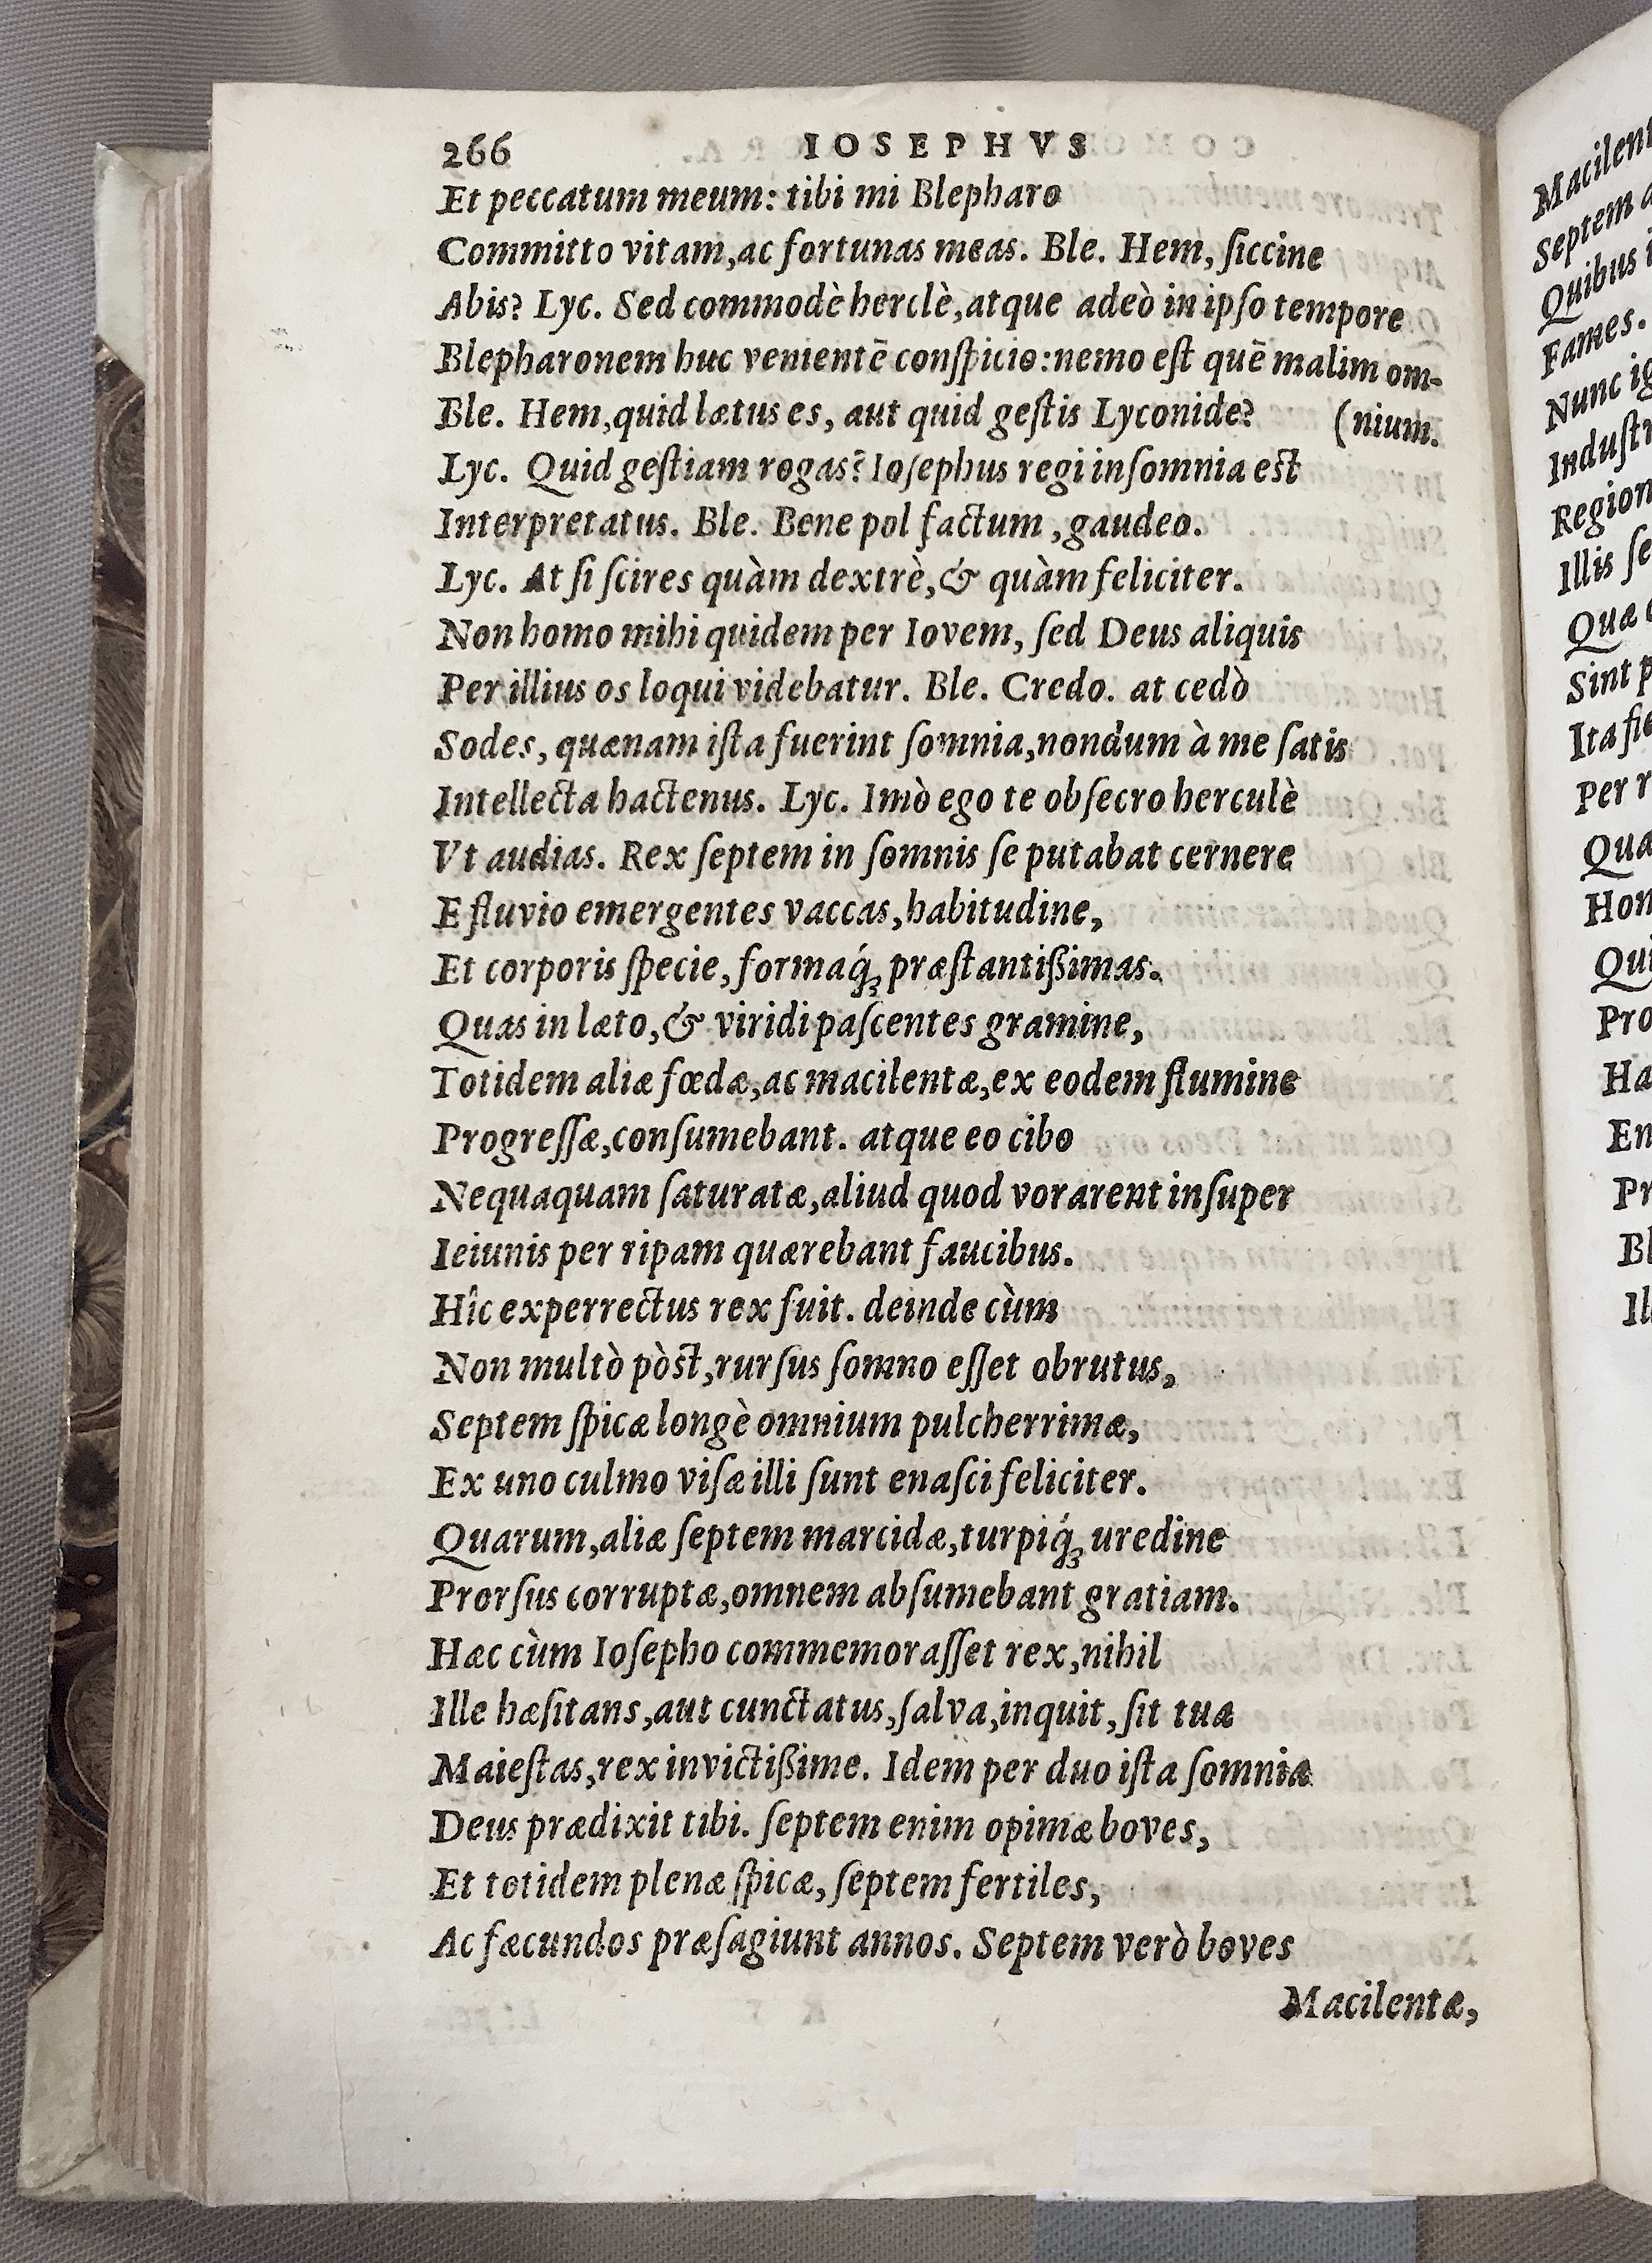 266 IOSEPHVS
Et peccatum meum: tibi mi Blepharo
Committo vitam, ac fortunas meas. Ble. Hem, ſiccine
Abis? Lyc. Sed commodè herclè, atque adeò in ipſo tempore
Blepharonem huc venientē conſpicio: nemo eſt quē malim om-
Ble. Hem, quid lætus es, aut quid geſtis Lyconide? (nium.
Lyc. Quid geſtiam rogas? Ioſephus regi inſomnia est
Interpretatus. Ble. Bene pol factum, gaudeo.
Lyc. At ſi ſcires quàm dextrè, & quàm feliciter.
Non homo mihi quidem per Iovem, ſed Deus aliquis
Per illius os loqui videbatur. Ble. Credo. at cedò
Sodes, quænam iſta fuerint ſomnia, nondum à me ſatis
Intellecta hactenus. Lyc. Imò ego te obſecro herculè
Vt audias. Rex ſeptem in ſomnis ſe putabat cernere
E fluvio emergentes vaccas, habitudine,
Et corporis ſpecie, formaq́; præſtantißimas.
Quas in læto, & viridi paſcentes gramine,
Totidem aliæ fœdæ, ac macilentæ, ex eodem flumine
Progreſſæ, conſumebant. atque eo cibo
Nequaquam ſaturatæ, aliud quod vorarent inſuper
Ieiunis per ripam quærebant faucibus.
Hîc experrectus rex fuit. deinde cùm
Non multò pòst, rurſus ſomno eſſet obrutus,
Septem ſpicæ longè omnium pulcherrimæ,
Ex uno culmo viſæ illi ſunt enaſci feliciter.
Quarum, aliæ ſeptem marcidæ, turpiq́; uredine
Prorſus corruptæ, omnem abſumebant gratiam.
Hæc cùm Ioſepho commemoraſſet rex, nihil
Ille hæſitans, aut cunctatus, ſalva, inquit, ſit tua
Maieſtas, rex invictißime. Idem per duo iſta ſomnia
Deus prædixit tibi. ſeptem enim opimæ boves,
Et totidem plenæ ſpicæ, ſeptem fertiles,
Ac fæcundos præſagiunt annos. Septem verò boves
Macilentæ,
Macilent
Septem
Quibus
Fames.
Nunc ig
Induſt
Region
Illis ſe
Quæ
Sint p
Ita fie
Per r
Qua
Hon
Qui
Pro
Ha
En
Pr
Bl
Il